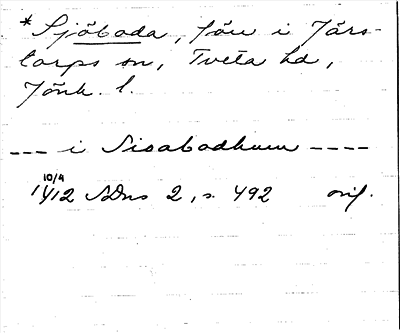 *Sjöboda, förr i Järs-
torps sn, Tveta hd,
Jönk. l.
--- i Sioabodhum ----
10/4
1412 SDns 2, s. 492 orig.